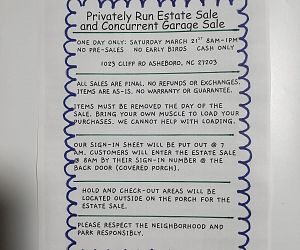 Privately Run Estate Sale
and Concurrent Garage Sale
ONE DAY ONLY: SATURDAY MARCH 21ST 8AM-1PM
NO PRE-SALES NO EARLY BIRDS CASH ONLY
1023 CLIFF RD ASHEBORO, NC 27203
ALL SALES ARE FINAL. NO REFUNDS OR EXCHANGES.
ITEMS ARE AS-IS. NO WARRANTY OR GUARANTEE.
ITEMS MUST BE REMOVED THE DAY OF THE
SALE. BRING YOUR OWN MUSCLE TO LOAD YOUR
PURCHASES. WE CANNOT HELP WITH LOADING.
OUR SIGN-IN SHEET WILL BE PUT OUT @ 7
AM. CUSTOMERS WILL ENTER THE ESTATE SALE
@ 8AM BY THEIR SIGN-IN NUMBER @ THE
BACK DOOR (COVERED PORCH).
HOLD AND CHECK-OUT AREAS WILL BE
LOCATED OUTSIDE ON THE PORCH FOR THE
ESTATE SALE.
PLEASE RESPECT THE NEIGHBORHOOD AND
PARK RESPONSIBLY.